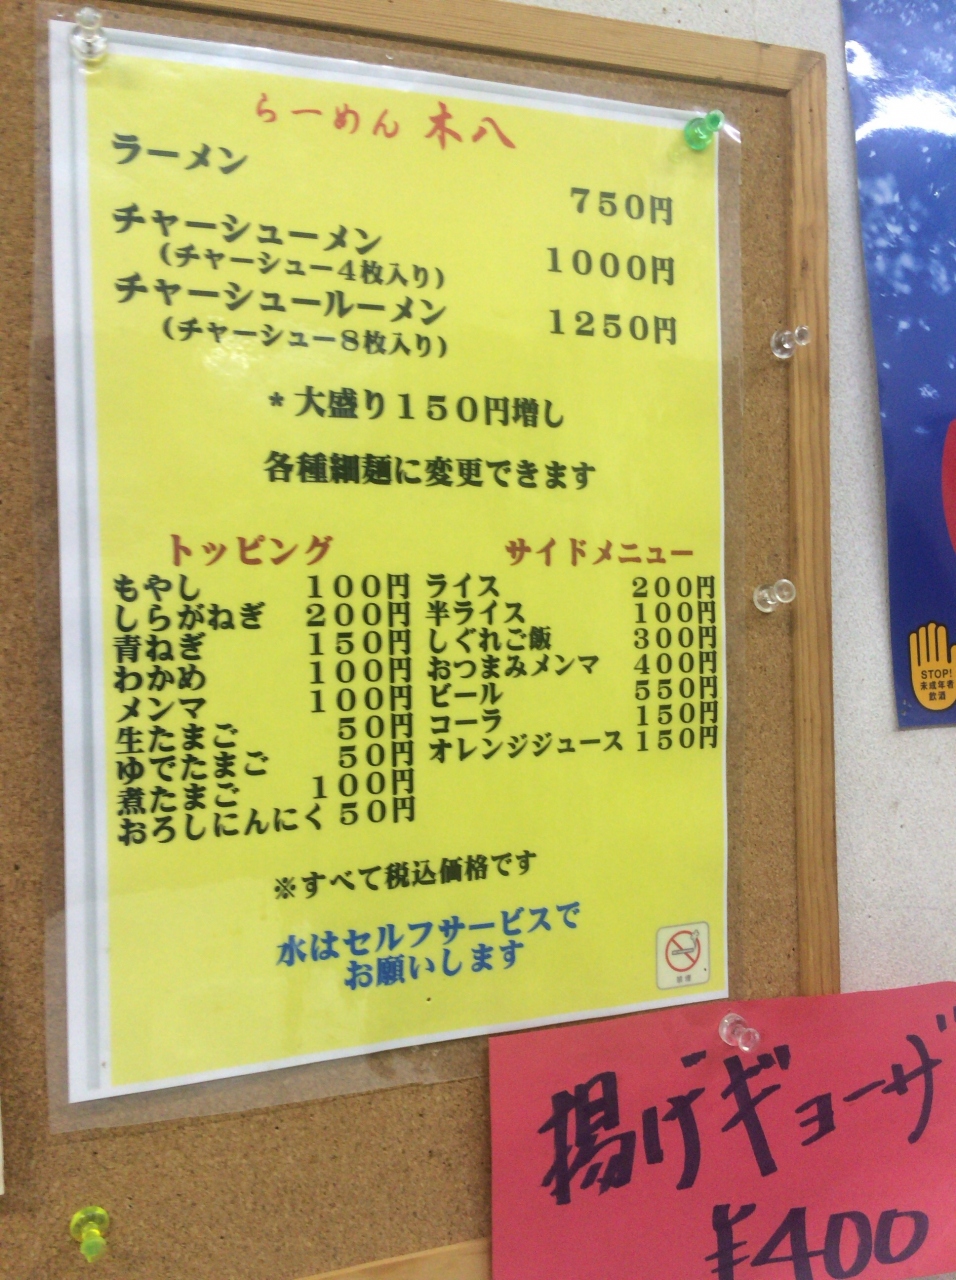 らーめん 木八
ラーメン 750円
チャーシューメン 1000円
(チャーシュー4枚入り)
チャーシュールーメン 1250円
(チャーシュー8枚入り)
*大盛り150円増し
各種細麺に変更できます
トッピング
もやし 100円
しらがねぎ 200円
青ねぎ 150円
わかめ 100円
メンマ 100円
生たまご 50円
ゆでたまご 50円
煮たまご 100円
おろしにんにく 50円
サイドメニュー
ライス 200円
半ライス 100円
しぐれご飯 300円
おつまみメンマ 400円
ビール 550円
コーラ 150円
オレンジジュース 150円
※すべて税込価格です
水はセルフサービスで
お願いします
禁煙
揚げギョーザ
¥400
STOP!
未成年者
飲酒